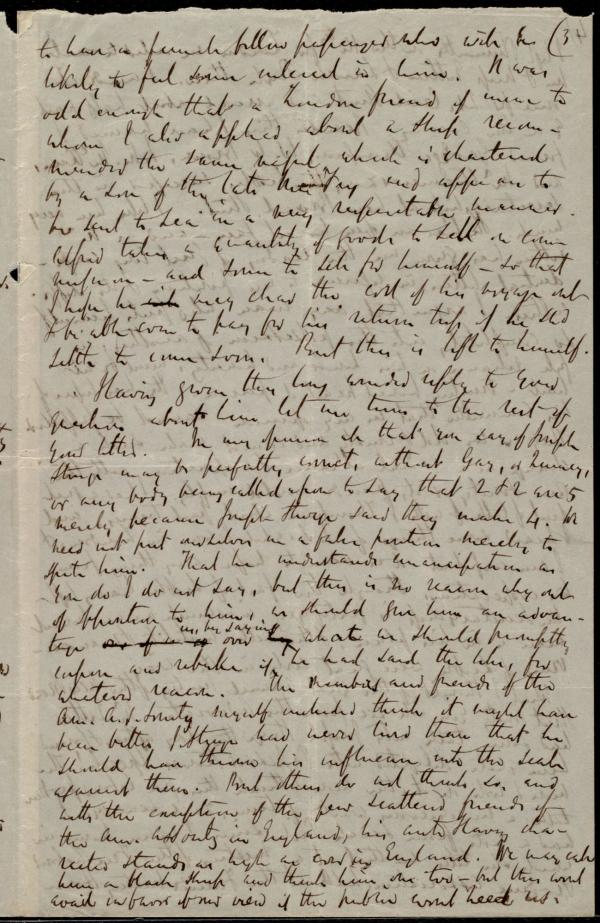 to have a female fellow passenger who will be (3
likely to feel some interest in him. It was
odd enough that a London friend of mine to
whom I also applied about a ship recom-
mended the same vessel which is chartered
by a son of the late and appears to
be sent to sea in a very respectable manner.
Alfred takes a quantity of goods to sell on com-
mission - and some to sell for himself - so that
I hope he may clear the cost of his voyage out
& be able even to pay for his return trip if he shd
settle to come soon. But this is left to himself.
Having given this long winded reply to your
question about him let me turn to the rest of
your letter. In my opinion all that you say of Joseph
Sturge may be perfectly correct, without Gay, or Quincy,
or any body being called upon to say that 2 & 2 are 5
merely because Joseph Sturge said they make 4. We
need not put ourselves in a false position merely to
spite him. That he understands emancipation as
you do I do not say, but this is no reason why out
of opposition to him, we should give him an advan-
tage over us, by saying what we should promptly
expose and rebuke if he had said the like, for
whatever reason. The members and friends of the
Am. A. S. Society myself included think it might have
been better J. Sturge had never lived than that he
should have thrown his influence into the scale
against them. But others do not think so, and
with the exception of the few scattered friends of
the Am. AS Society in England, his anti Slavery cha-
racter stands as high as ever in England. We may call
him a black sheep and think him one too - but this wont
avail in favor of our view if the public wont heed us.